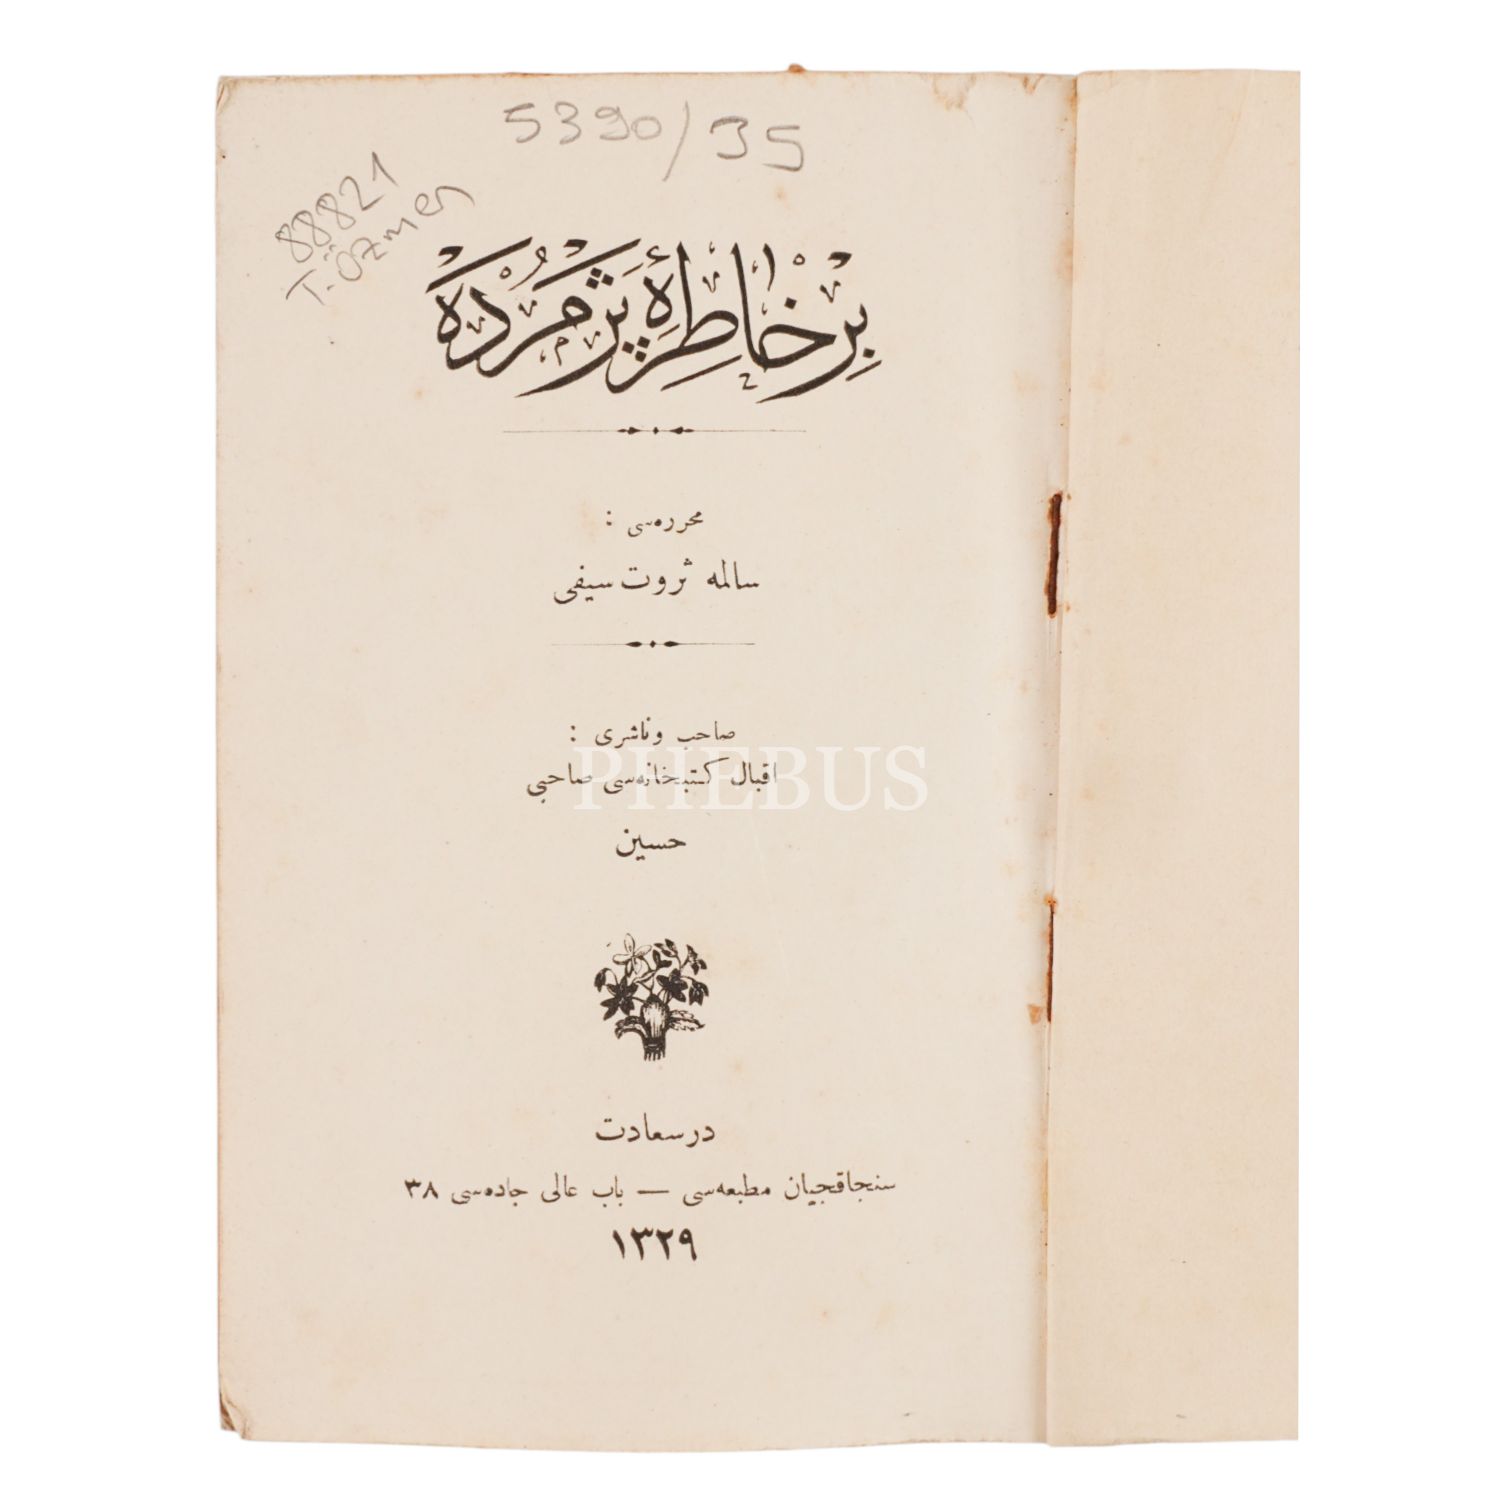 5390/35
88821
T. Özmen
بِرْ خَاطِرَهٔ پَژْمُرْدَه
محرره‌سی :
سالمه ثروت سیفی
صاحب و ناشری :
اقبال کتبخانه‌سی صاحبی
حسین
PHEBUS
درسعادت
سنجاقجیان مطبعه‌سی — باب عالی جاده‌سی ٣٨
١٣٢٩